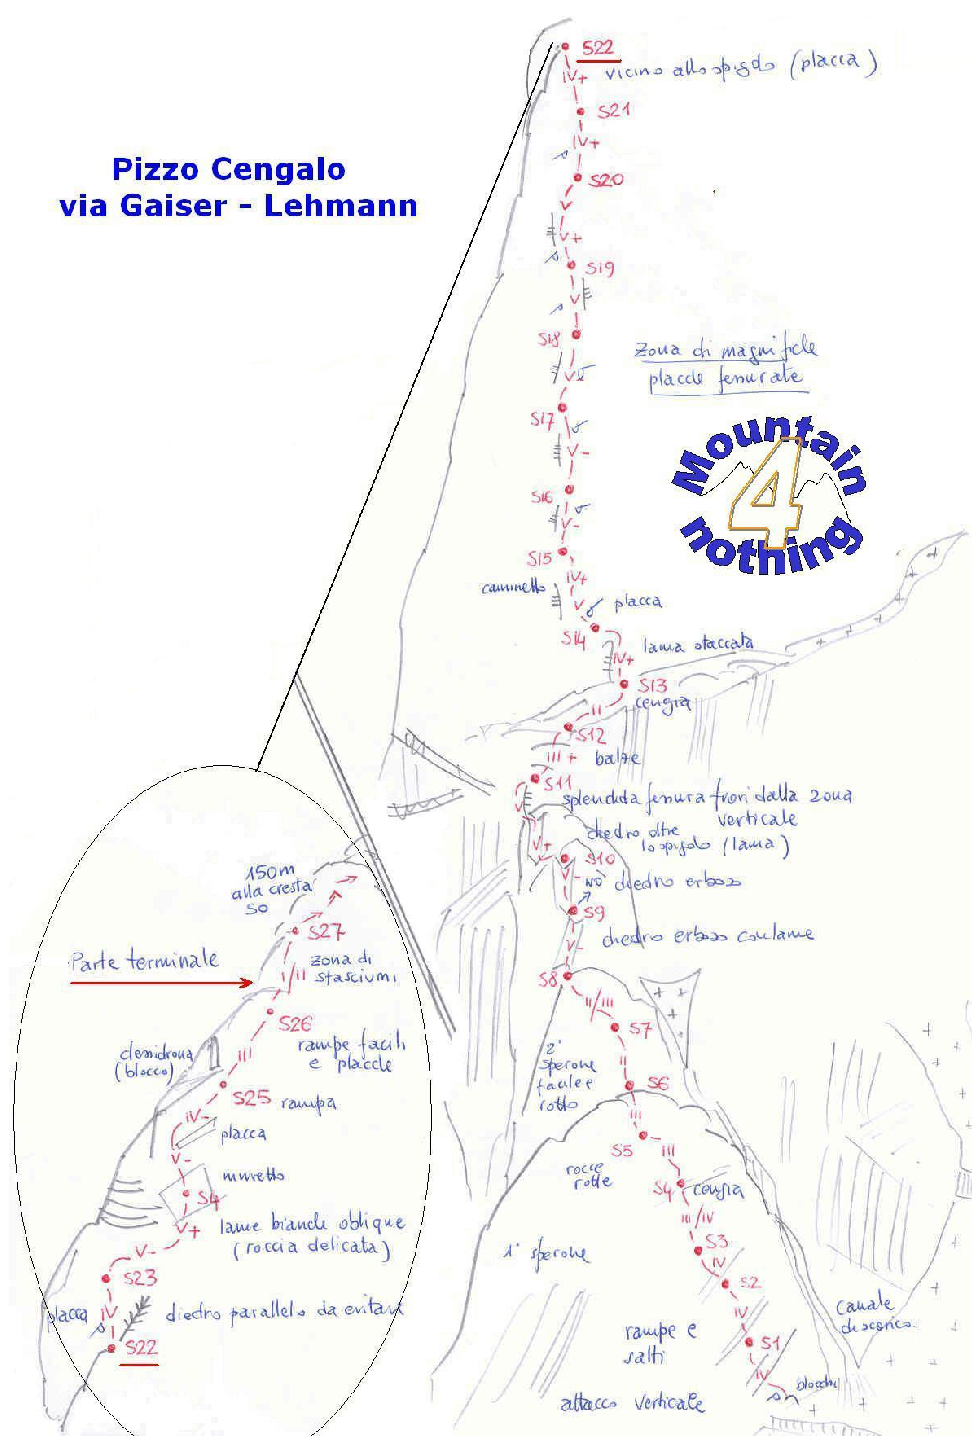 S22
IV+
vicino allo spigolo (placca)
S21
IV+
Pizzo Cengalo
via Gaiser - Lehmann
S20
V
V+
S19
V
S18
Zona di magnifiche
placche fessurate
V
S17
V-
Mountain
4
nothing
S16
V-
S15
IV+
caminetto
V
placca
S14
lama staccata
IV+
S13
cengia
II
S12
III+
balze
S11
splendida fessura fuori dalla zona
verticale
diedro oltre
lo spigolo (lama)
V+
S10
V-
NO diedro erboso
S9
diedro erboso con lame
V-
S8
II/III
S7
2° sperone
facile e
rotto
II
S6
III
S5
III
rocce
rotte
S4
cengia
III/IV
S3
1° sperone
IV
S2
IV
rampe e
salti
S1
Canale
di scarico
IV
blocchi
attacco verticale
150m
alla cresta
SO
S27
Parte terminale
I/II
zona di
sfasciumi
S26
clessidrona
(blocco)
rampe facili
e placche
III
S25
rampa
IV-
placca
V-
muretto
S4
V+
lame bianche oblique
(roccia delicata)
V-
S23
placca
IV
diedro parallelo da evitare
S22